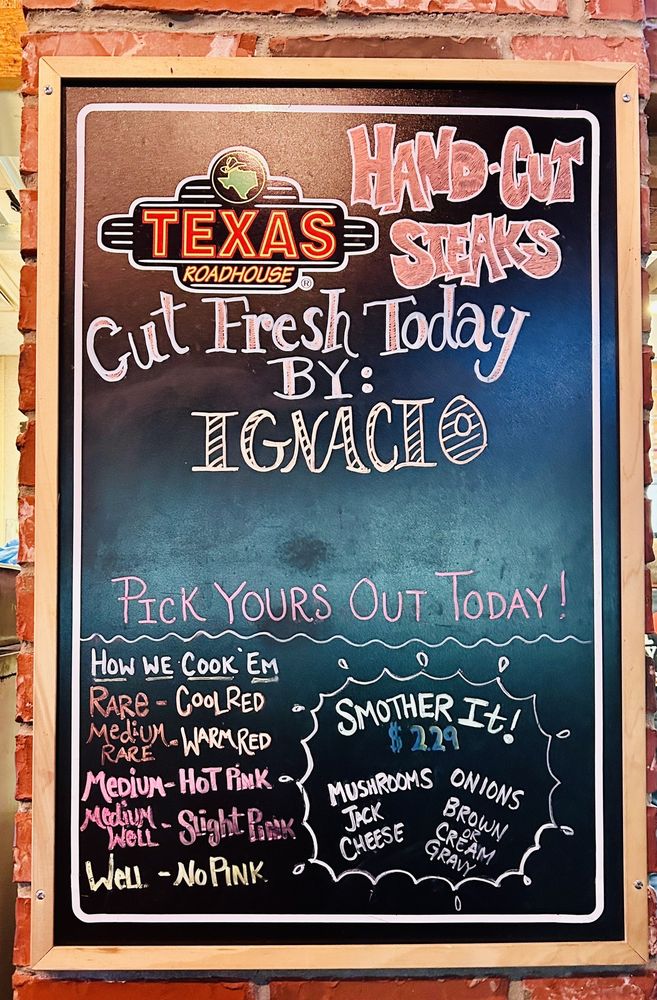 TEXAS
ROADHOUSE®
HAND-CUT
STEAKS
Cut Fresh Today
BY:
IGNACIO
PICK YOURS OUT TODAY!
HOW WE COOK 'EM
RARE - COOL RED
MEDIUM RARE - WARM RED
MEDIUM - HOT PINK
MEDIUM WELL - Slight PINK
WELL - NO PINK
SMOTHER It!
$2.29
MUSHROOMS
JACK
CHEESE
ONIONS
BROWN
OR
CREAM
GRAVY